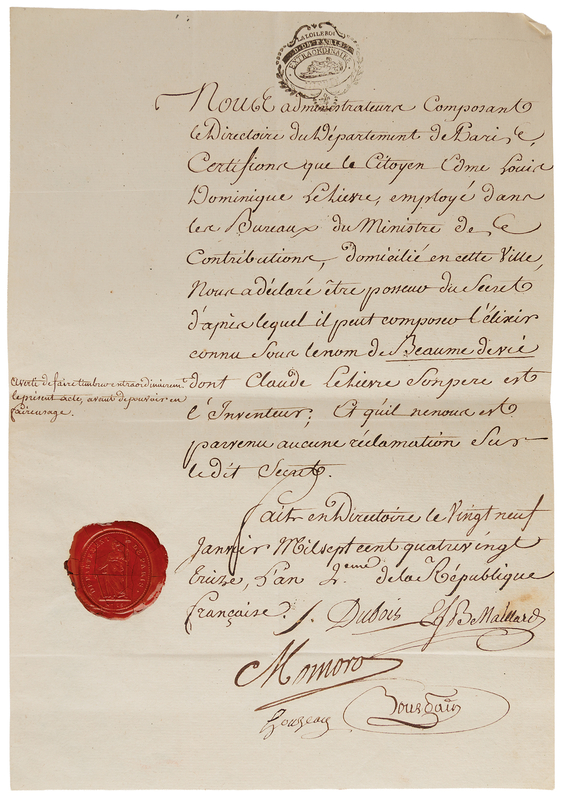 LA LOI LE ROI
D. DE PARIS
EXTRAORDINAIRE
Nous administrateurs Composant
le Directoire du Département de Paris,
Certifions que le Citoyen Edme Louis
Dominique Lelievre, employé dans
les Bureaux du Ministre des
Contributions, domicilié en cette Ville,
Nous a déclaré être posseur du Secret
d'après lequel il peut composer l'élixir
connu Sous le nom de Beaume de vie
dont Claude Lelievre Son pere est
l'Inventeur; Et qu'il ne nous est
parvenu aucune réclamation Sur
le dit Secret.
averti de faire timbrer extraordinairemt
le présent acte, avant de pouvoir en
faire usage.
Fait en Directoire le Vingt neuf
Janvier Mil sept cent quatre vingt
treize, L'an 2.eme de la République
française.
DEPARTEMENT DE PARIS
J. Dubois
Maillard
Momoro
Bourdain